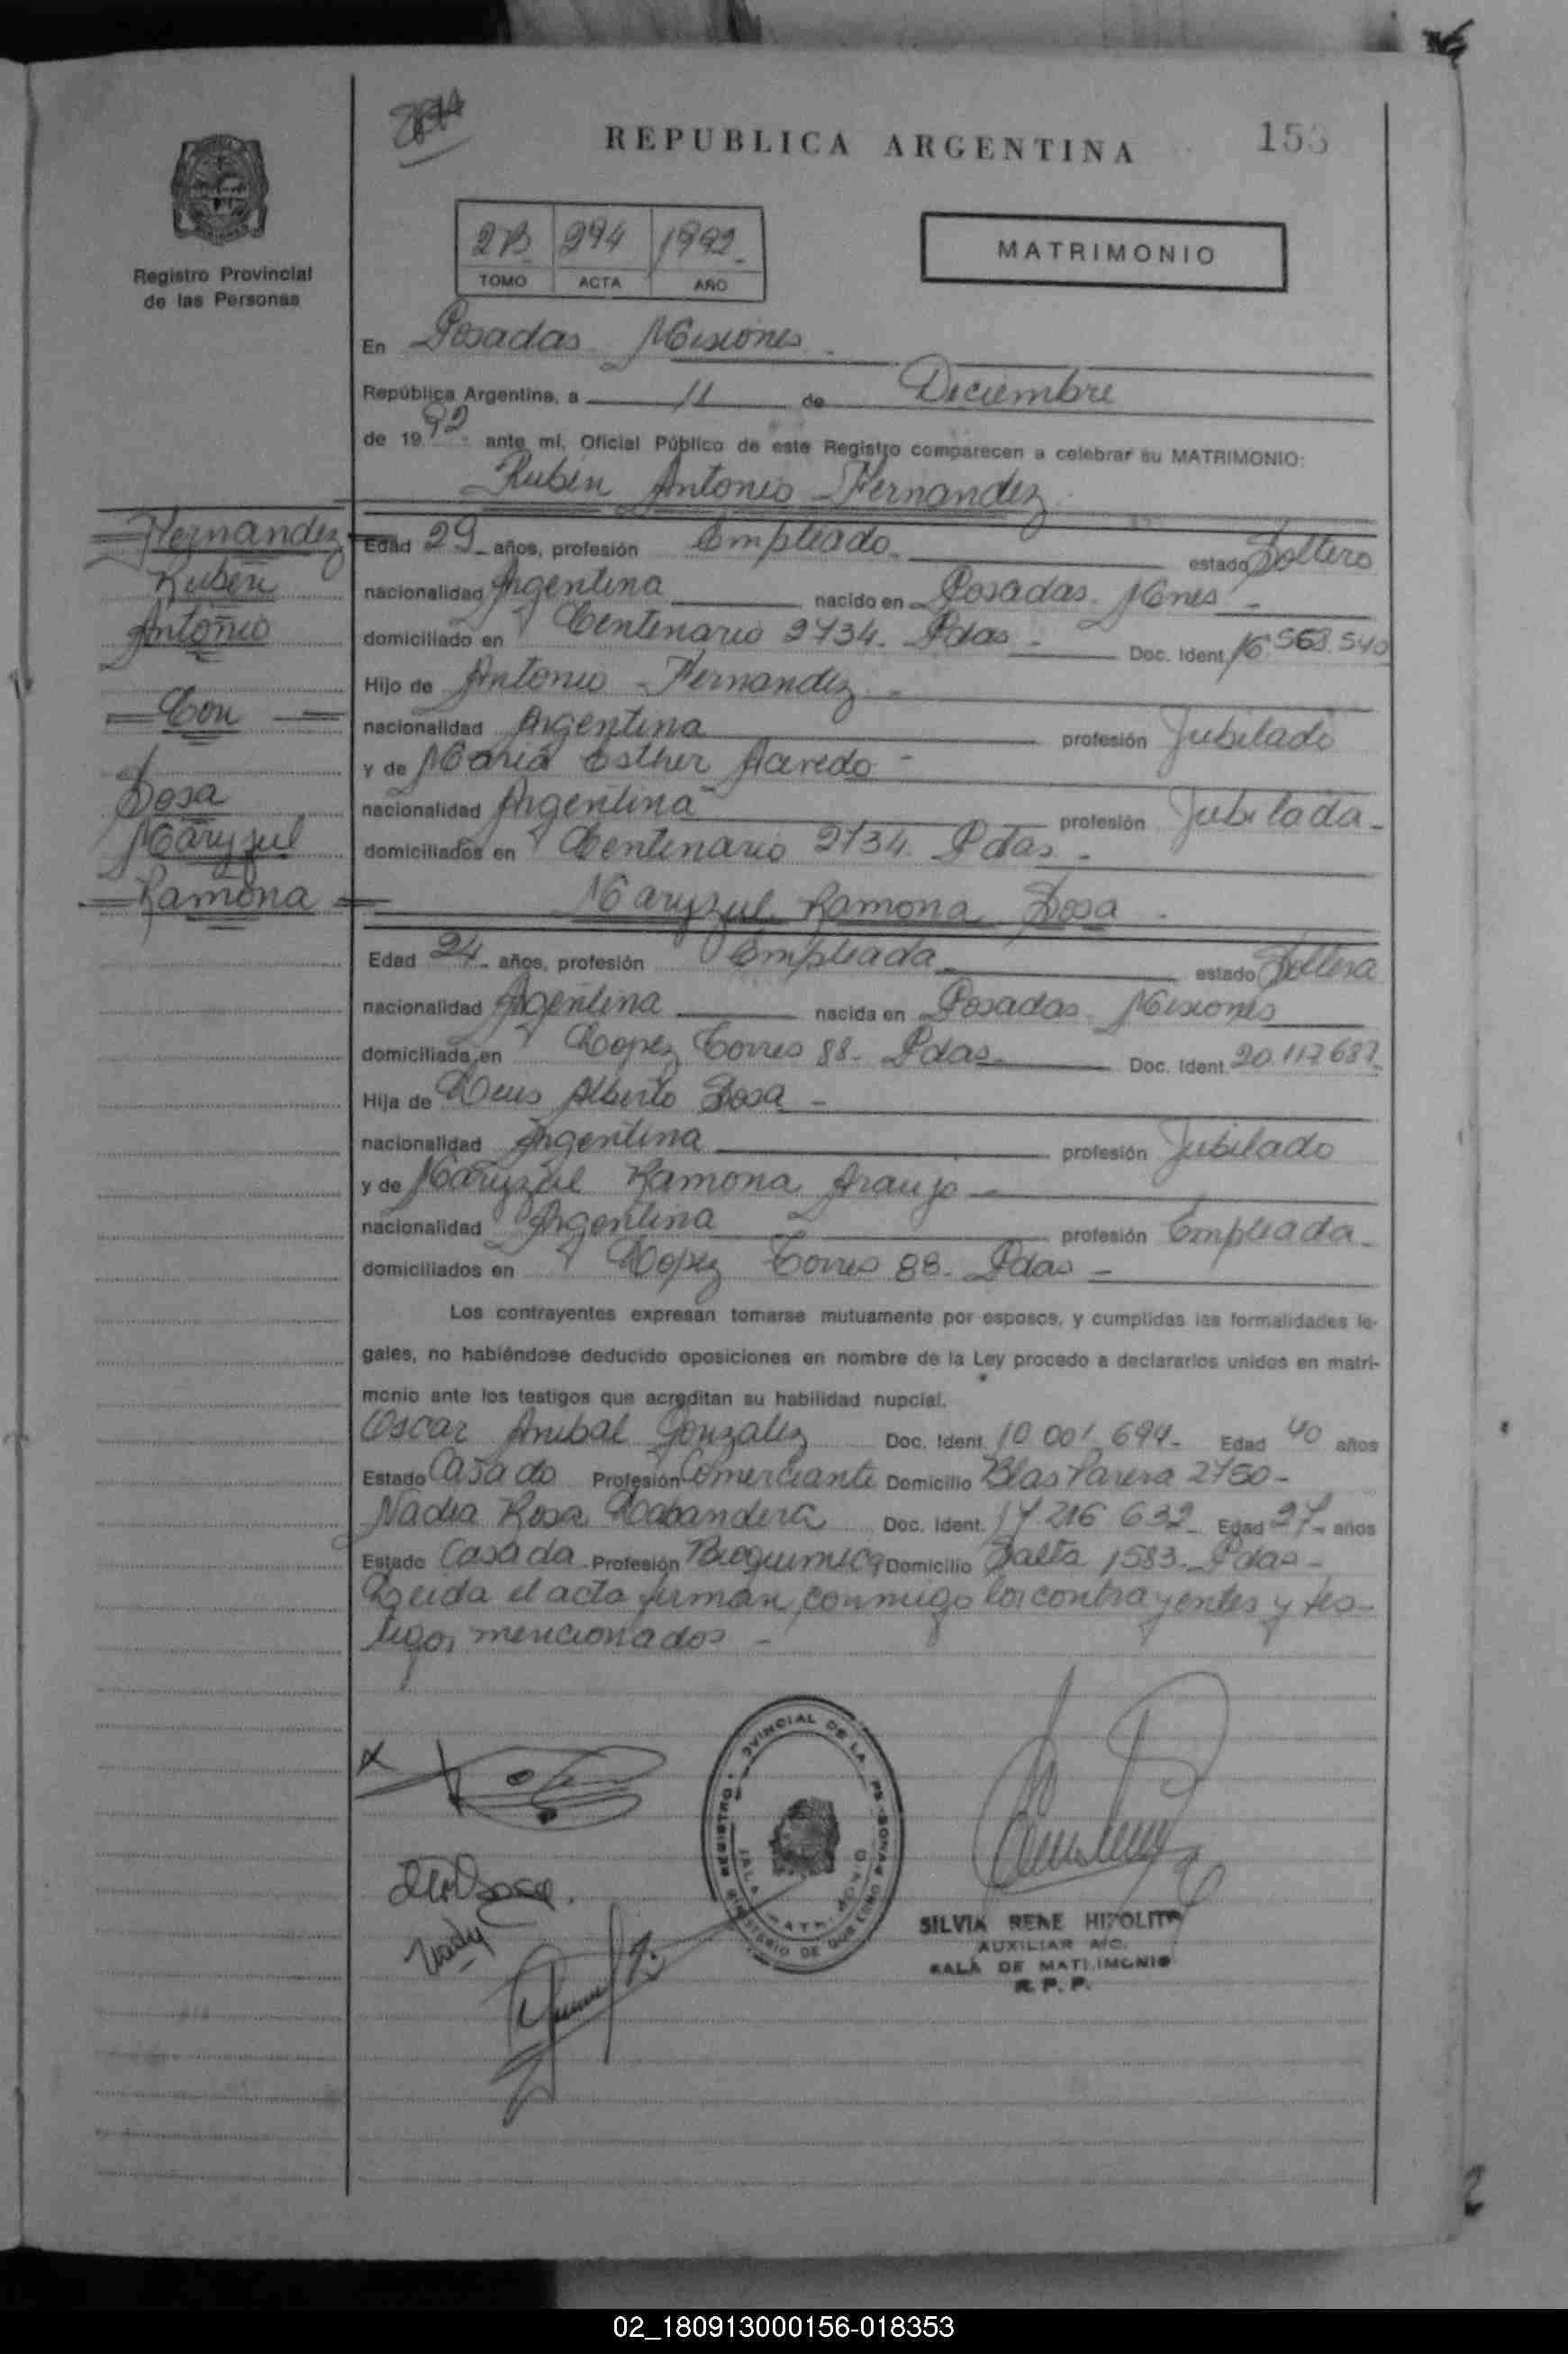 REPUBLICA ARGENTINA
Registro Provincial
de las Personas
2B 294 1992
TOMO ACTA AÑO
MATRIMONIO
En Posadas Misiones
República Argentina, a 11 de Diciembre
de 1992 ante mí, Oficial Público de este Registro comparecen a celebrar su MATRIMONIO:
Rubén Antonio Fernandez
Fernandez
Rubén
Antonio
Con
Sosa
Maryzul
Ramona
Edad 29 años, profesión Empleado estado Soltero
nacionalidad Argentina nacido en Posadas. Mnes
domiciliado en Centenario 2734. Pdas Doc. Ident. 16.568.540
Hijo de Antonio Fernandez
nacionalidad Argentina profesión Jubilado
y de Maria Esther Acevedo
nacionalidad Argentina profesión Jubilada
domiciliados en Centenario 2734. Pdas
Maryzul Ramona Sosa
Edad 24 años, profesión Empleada estado Soltera
nacionalidad Argentina nacida en Posadas Misiones
domiciliada en Lopez Torres 88. Pdas Doc. Ident. 20.117.687
Hija de Luis Alberto Sosa
nacionalidad Argentina profesión Jubilado
y de Maryzul Ramona Araujo
nacionalidad Argentina profesión Empleada
domiciliados en Lopez Torres 88. Pdas
Los contrayentes expresan tomarse mutuamente por esposos, y cumplidas las formalidades le-
gales, no habiéndose deducido oposiciones en nombre de la Ley procedo a declararlos unidos en matri-
monio ante los testigos que acreditan su habilidad nupcial.
Oscar Anibal Gonzalez Doc. Ident. 10 001 694 Edad 40 años
Estado Casado Profesión Comerciante Domicilio Blas Parera 2750
Nadia Rosa Labandera Doc. Ident. 17 216 632 Edad 27 años
Estado Casada Profesión Bioquimica Domicilio Salta 1583. Pdas
Leida el acta firman conmigo los contrayentes y tes-
tigos mencionados
SILVIA RENE HIPOLITO
AUXILIAR A/C.
SALA DE MATRIMONIO
R. P. P.
02_180913000156-018353